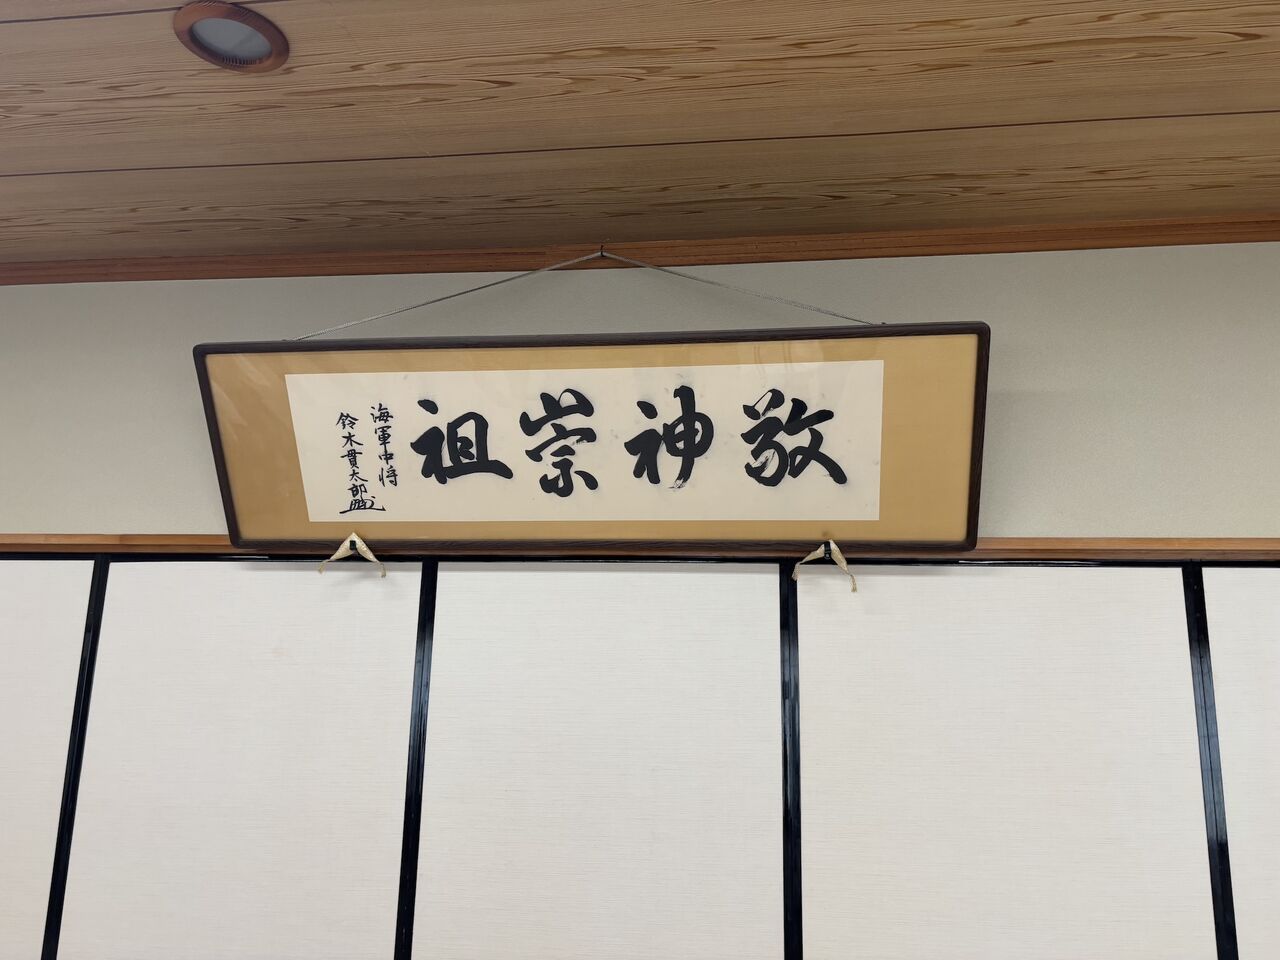 敬神崇祖
海軍中将
鈴木貫太郎